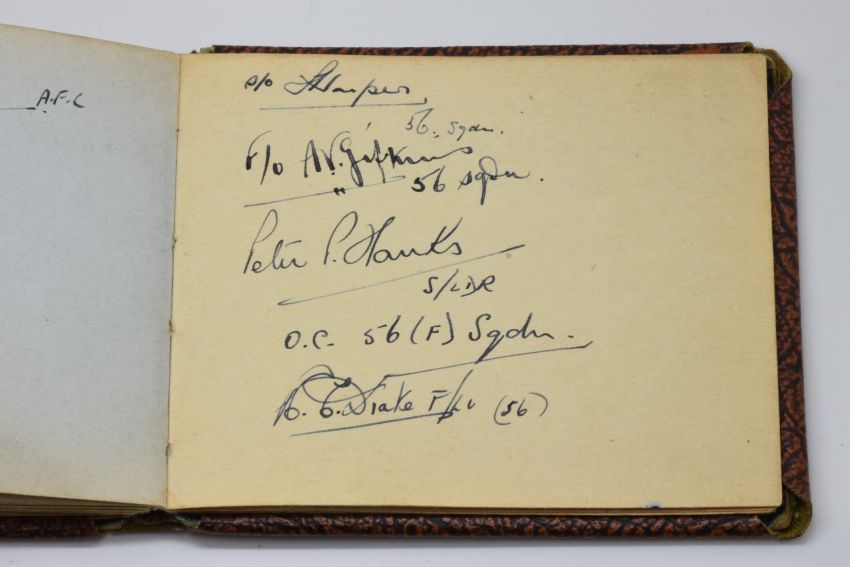 A.F.C
P/O Harper
56. Sqdn.
F/O A.V. Gifkins
" 56 Sqdn.
Peter P. Hanks
S/LDR
O.C. 56 (F) Sqdn.
Drake F/Lt (56)